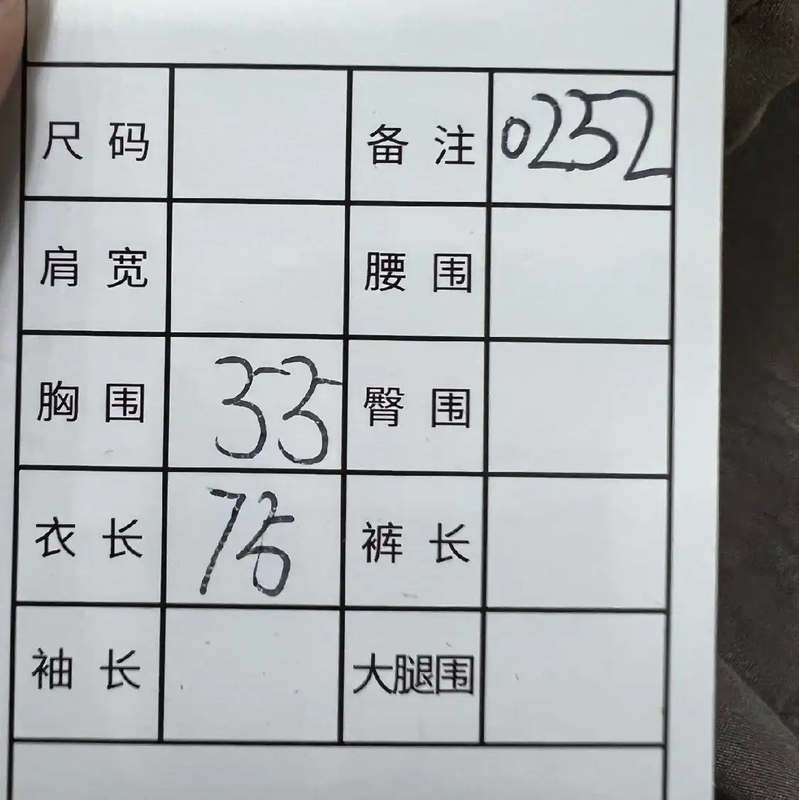 尺码 备注 0252
肩宽 腰围
胸围 臀围
衣长 75 裤长
袖长 大腿围